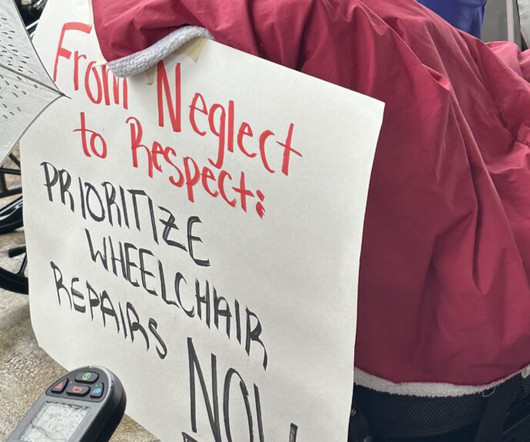 From Neglect
to Respect:
PRIORITIZE
WHEELCHAIR
REPAIRS
NOW